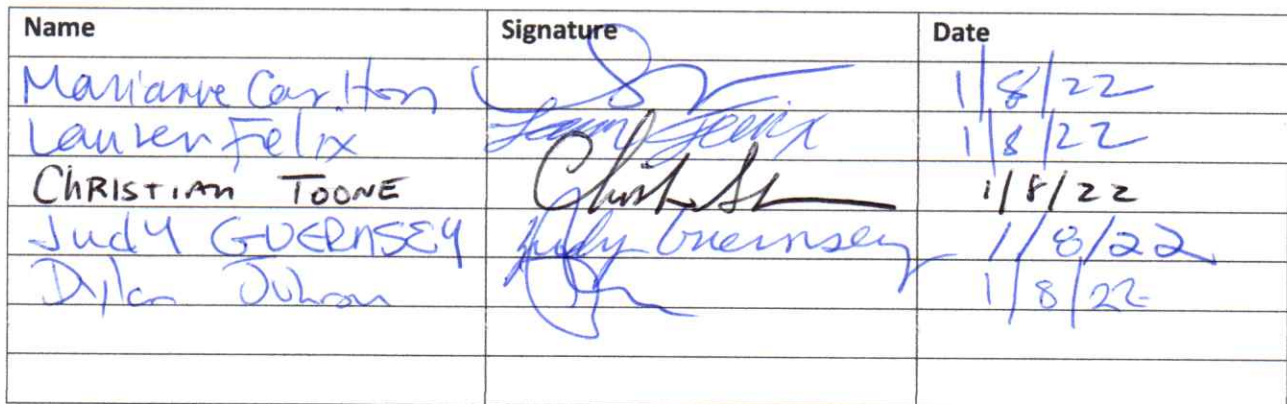 Name Signature Date
Marianne Carlton 1/8/22
Lauren Felix Lauren Felix 1/8/22
CHRISTIAN TOONE 1/8/22
Judy GUERNSEY Judy Guernsey 1/8/22
Dylan 1/8/22